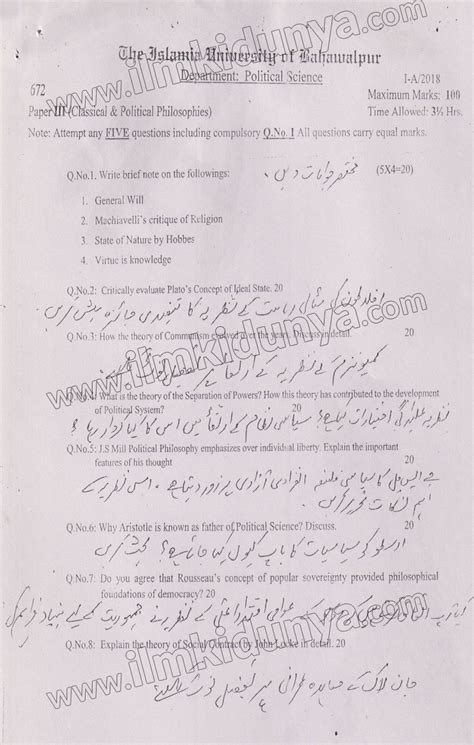 The Islamia University of Bahawalpur
Department: Political Science
I-A/2018
672
Maximum Marks: 100
Paper III (Classical & Political Philosophies)
Time Allowed: 3½ Hrs.
Note: Attempt any FIVE questions including compulsory Q.No. 1 All questions carry equal marks.
Q.No.1. Write brief note on the followings: مختصر جوابات دیں۔ (5X4=20)
1. General Will
2. Machiavelli's critique of Religion
3. State of Nature by Hobbes
4. Virtue is knowledge
Q.No.2: Critically evaluate Plato's Concept of Ideal State. 20
افلاطون کی مثالی ریاست کے نظریہ کا تنقیدی جائزہ پیش کریں
Q.No.3: How the theory of Communism evolved over the years. Discuss in detail. 20
کمیونزم کے نظریہ کے ارتقاء
What is the theory of the Separation of Powers? How this theory has contributed to the development
of Political System? 20
نظریہ علیحدگی اختیارات کیا ہے؟ سیاسی نظام کے ارتقاء میں اس کا کیا کردار رہا؟
Q.No.5: J.S Mill Political Philosophy emphasizes over individual liberty. Explain the important
features of his thought 20
جے ایس مل کا سیاسی فلسفہ انفرادی آزادی پر زور دیتا ہے۔ اس نظریے کے
اہم نکات تحریر کریں
Q.No.6: Why Aristotle is known as father of Political Science? Discuss. 20
ارسطو کو سیاسیات کا باپ کیوں کہا جاتا ہے؟ بحث کریں
Q.No.7: Do you agree that Rousseau's concept of popular sovereignty provided philosophical
foundations of democracy? 20
عوامی اقتدار اعلیٰ کے نظریے نے جمہوریت کیلئے بنیاد فراہم کی
Q.No.8: Explain the theory of Social Contract by John Locke in detail. 20
جان لاک کے معاہدہ عمرانی پر تفصیلی نوٹ لکھیے
www.ilmkidunya.com
www.ilmkidunya.com
www.ilmkidunya.com
www.ilmkidunya.com